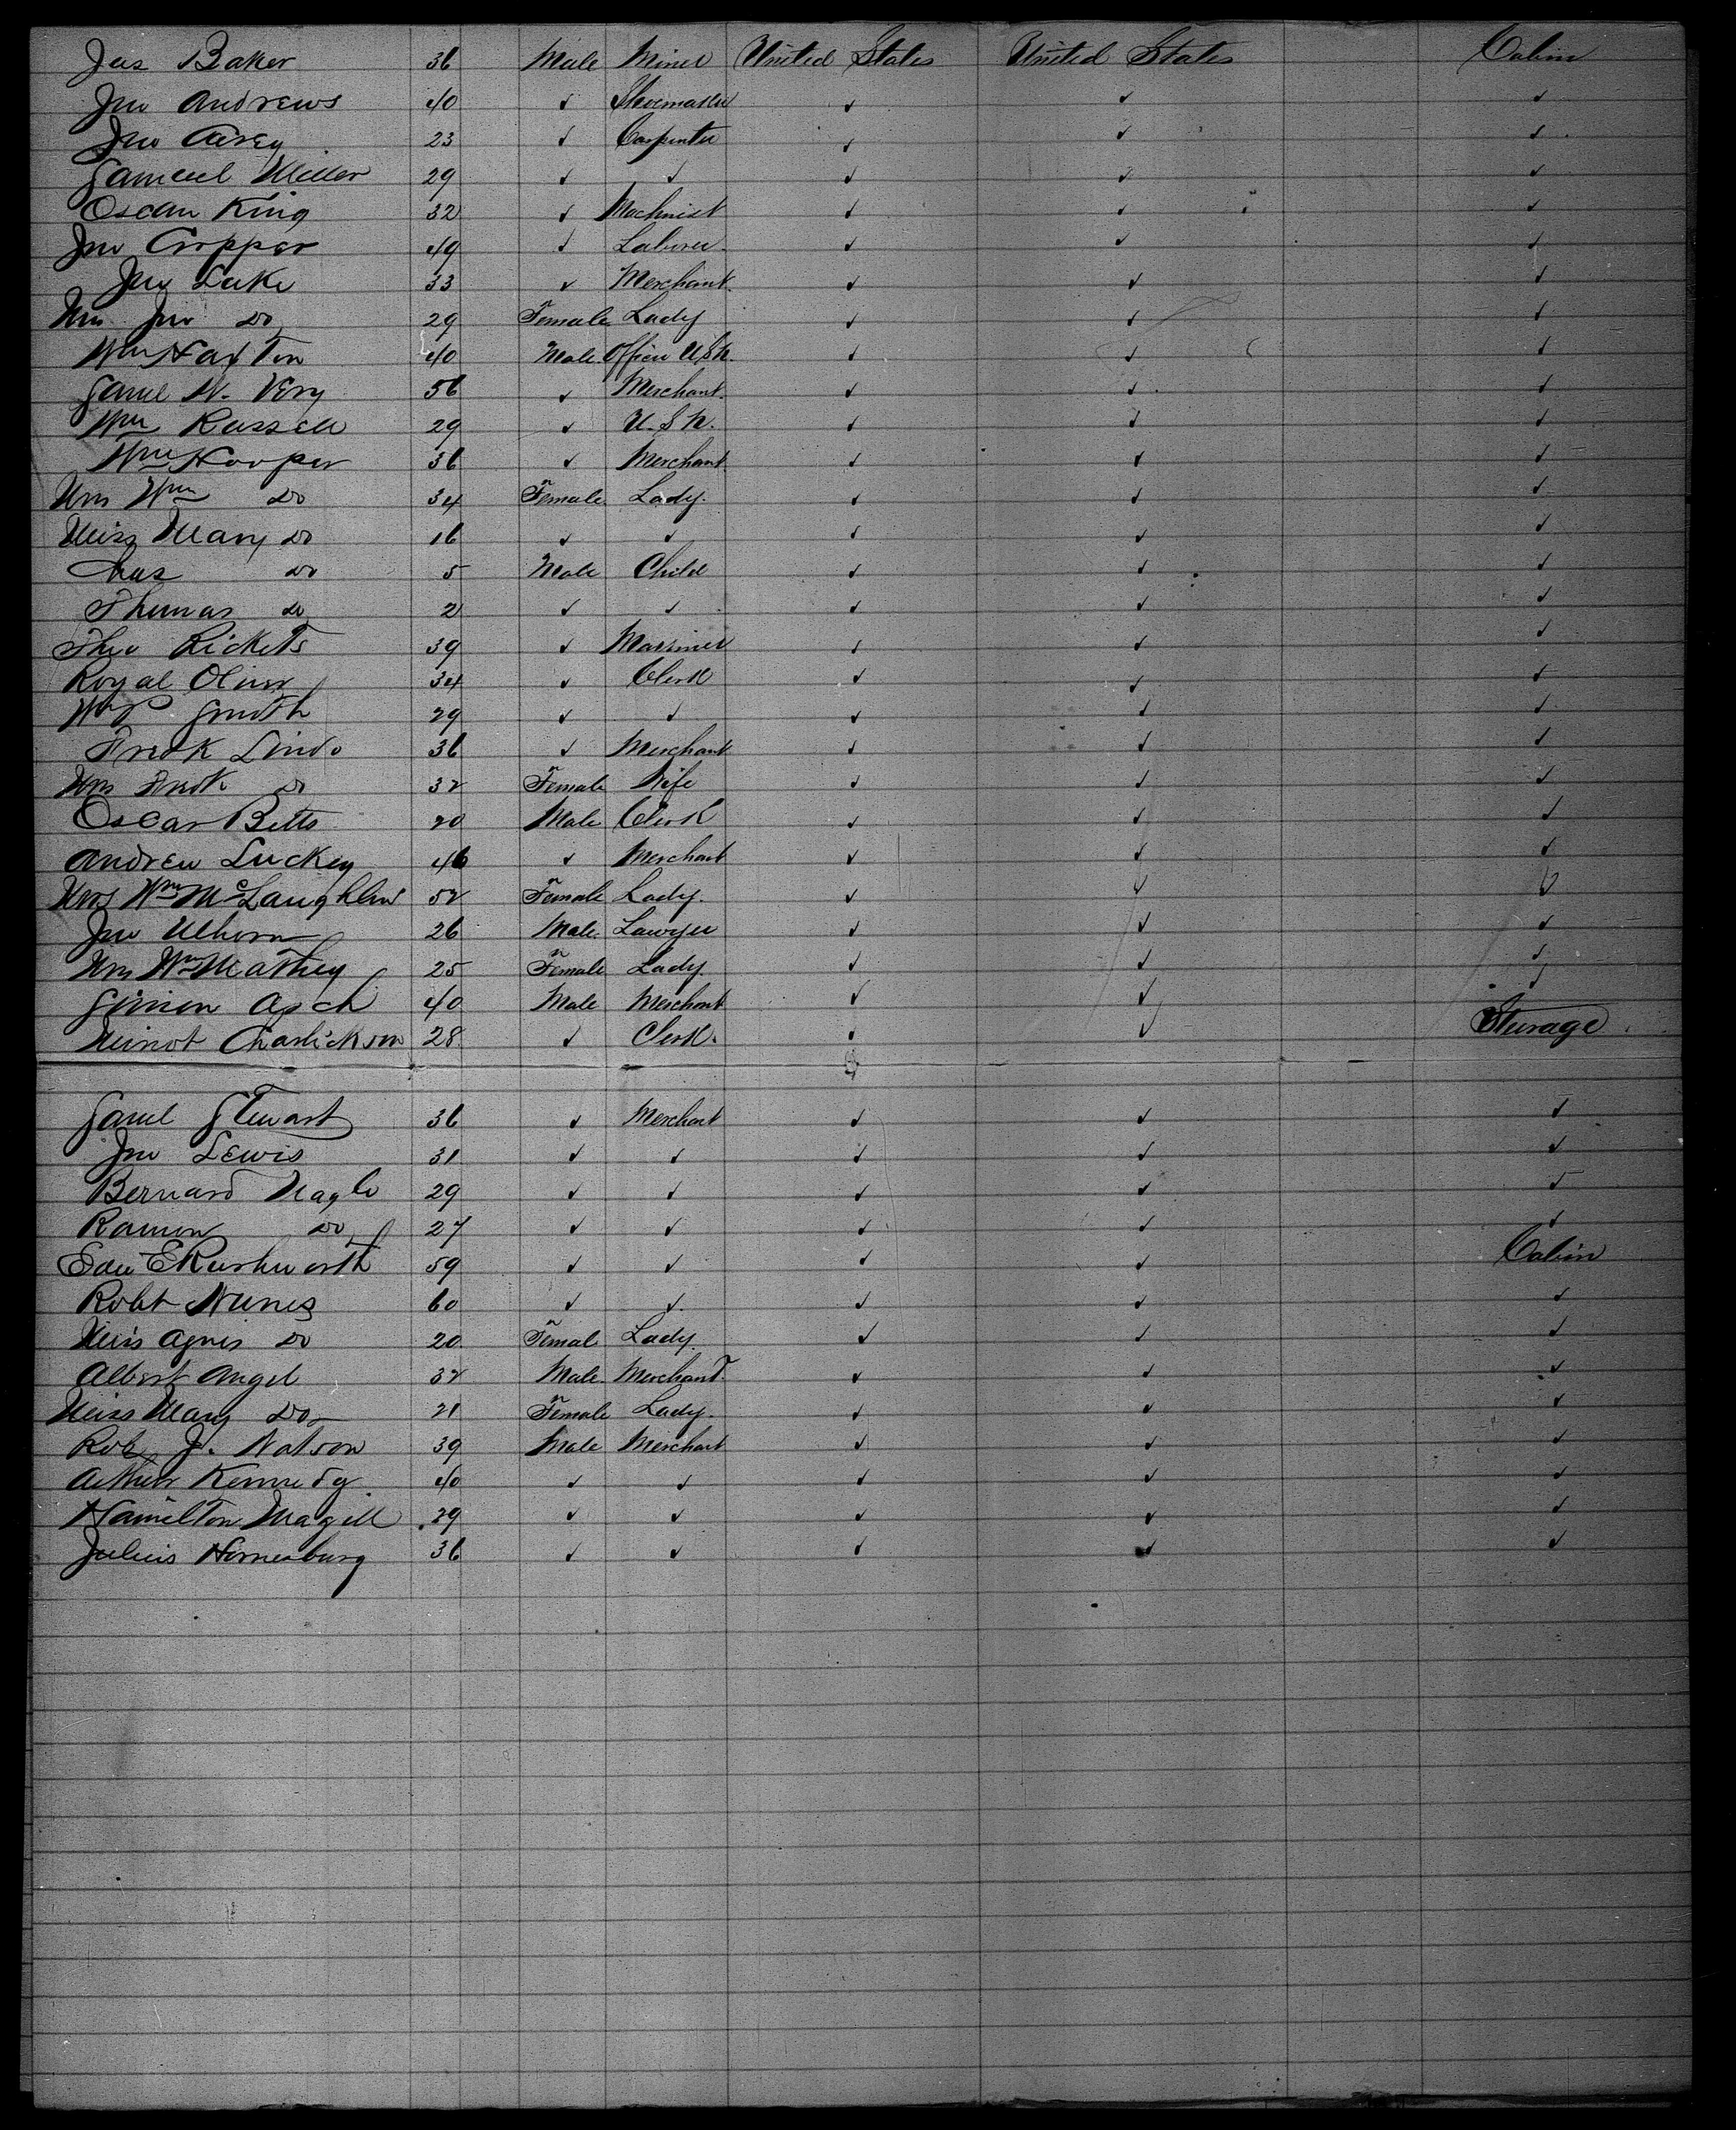 Jas Baker 36 Male Miner United States United States Cabin
Jno Andrews 40 ✓ Shoemaker ✓ ✓ ✓
Jno Airey 23 ✓ Carpenter ✓ ✓ ✓
Samuel Miller 29 ✓ ✓ ✓ ✓ ✓
Oscar King 32 ✓ Machinist ✓ ✓ ✓
Jno Cropper 49 ✓ Laborer ✓ ✓ ✓
Jno Lake 33 ✓ Merchant ✓ ✓ ✓
Mrs Jno Do 29 Female Lady ✓ ✓ ✓
Wm Haxton 40 Male Officer U.S.N. ✓ ✓ ✓
Saml W. Very 56 ✓ Merchant ✓ ✓ ✓
Wm Russell 29 ✓ U.S.N. ✓ ✓ ✓
Wm Hooper 36 ✓ Merchant ✓ ✓ ✓
Mrs Wm Do 34 Female Lady ✓ ✓ ✓
Miss Mary Do 16 ✓ ✓ ✓ ✓ ✓
Chas Do 5 Male Child ✓ ✓ ✓
Thomas Do 2 ✓ ✓ ✓ ✓ ✓
Theo Rickets 39 ✓ Marriner ✓ ✓ ✓
Royal Oliver 34 ✓ Clerk ✓ ✓ ✓
Wm P Smith 29 ✓ ✓ ✓ ✓ ✓
Fredk Lindo 36 ✓ Merchant ✓ ✓ ✓
Mrs Fredk Do 32 Female Wife ✓ ✓ ✓
Oscar Betts 20 Male Clerk ✓ ✓ ✓
Andrew Luckey 46 ✓ Merchant ✓ ✓ ✓
Mrs Wm McLaughlin 52 Female Lady ✓ ✓ ✓
Jno Ulhorn 26 Male Lawyer ✓ ✓ ✓
Mrs Wm Mathey 25 Female Lady ✓ ✓ ✓
Simon Asch 40 Male Merchant ✓ ✓ ✓
Minot Charlickson 28 ✓ Clerk ✓ ✓ Sturage
Saml Stewart 36 ✓ Merchant ✓ ✓ ✓
Jno Lewis 31 ✓ ✓ ✓ ✓ ✓
Bernard Nagle 29 ✓ ✓ ✓ ✓ ✓
Ramon Do 27 ✓ ✓ ✓ ✓ ✓
Edw E Rushworth 59 ✓ ✓ ✓ ✓ Cabin
Robt Nunes 60 ✓ ✓ ✓ ✓ ✓
Miss Agnes Do 20 Femal Lady ✓ ✓ ✓
Albert Angel 32 Male Merchant ✓ ✓ ✓
Miss Mary Do 21 Female Lady ✓ ✓ ✓
Rob J. Watson 39 Male Merchant ✓ ✓ ✓
Arthur Kennedy 40 ✓ ✓ ✓ ✓ ✓
Hamilton Magill 29 ✓ ✓ ✓ ✓ ✓
Julius 36 ✓ ✓ ✓ ✓ ✓